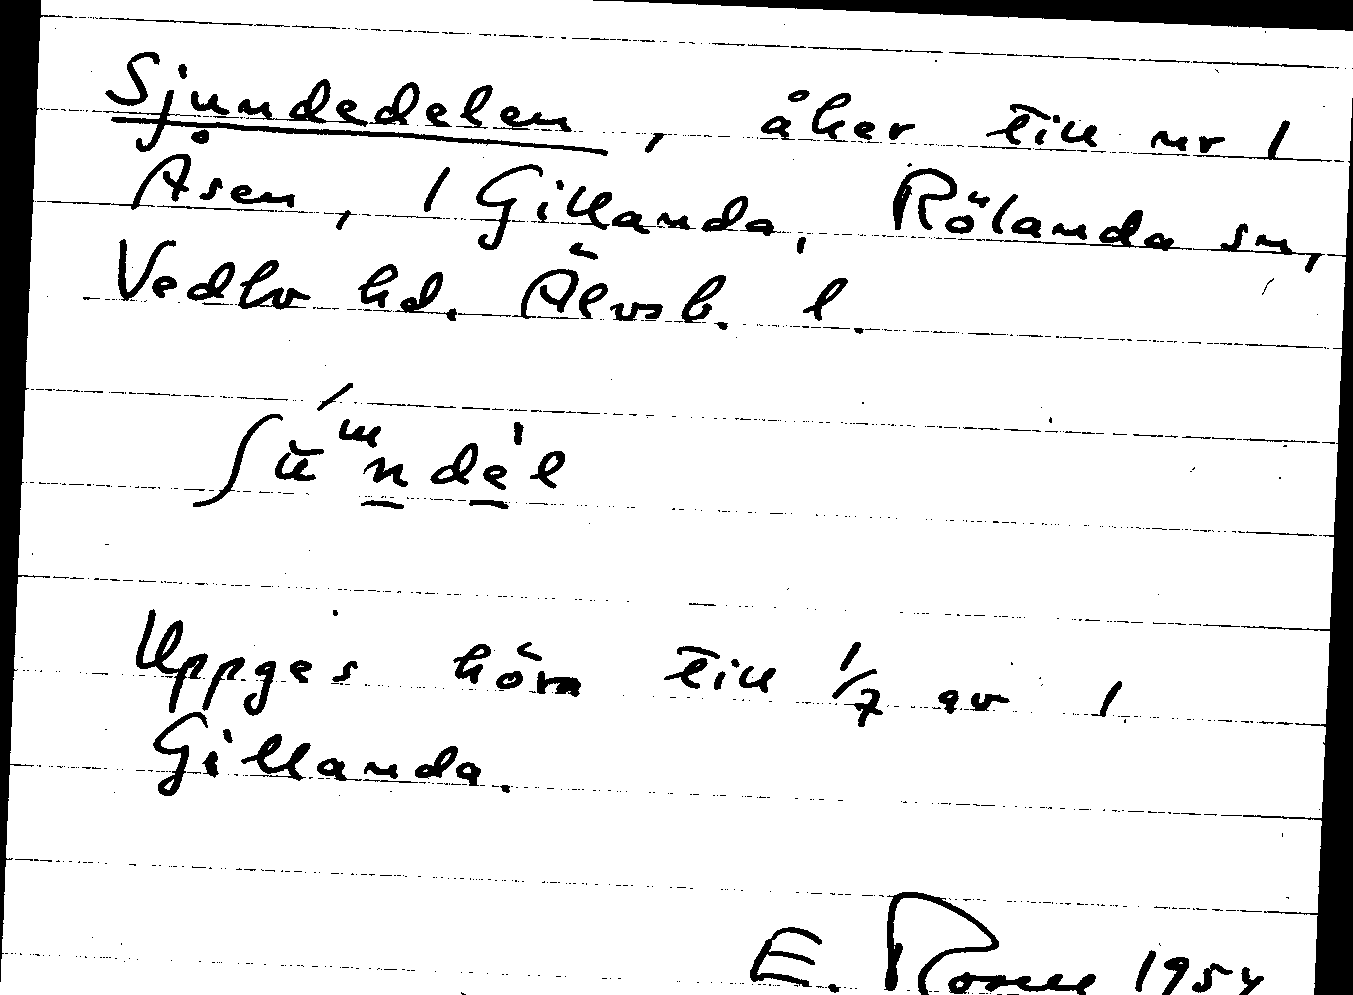 Sjundedelen, åker till nr 1
Åsen, 1 Gillanda, Rölanda sn,
Vedbo hd. Älvsb. l.
Uppges höra till 1/7 av 1
Gillanda.
E. 1954